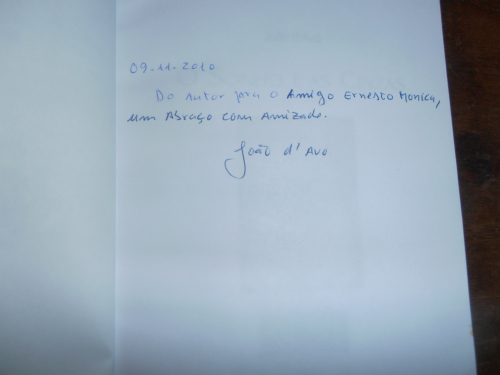 09.11.2010
Do Autor para o Amigo Ernesto Monica,
um Abraço com Amizade.
João d'Avo